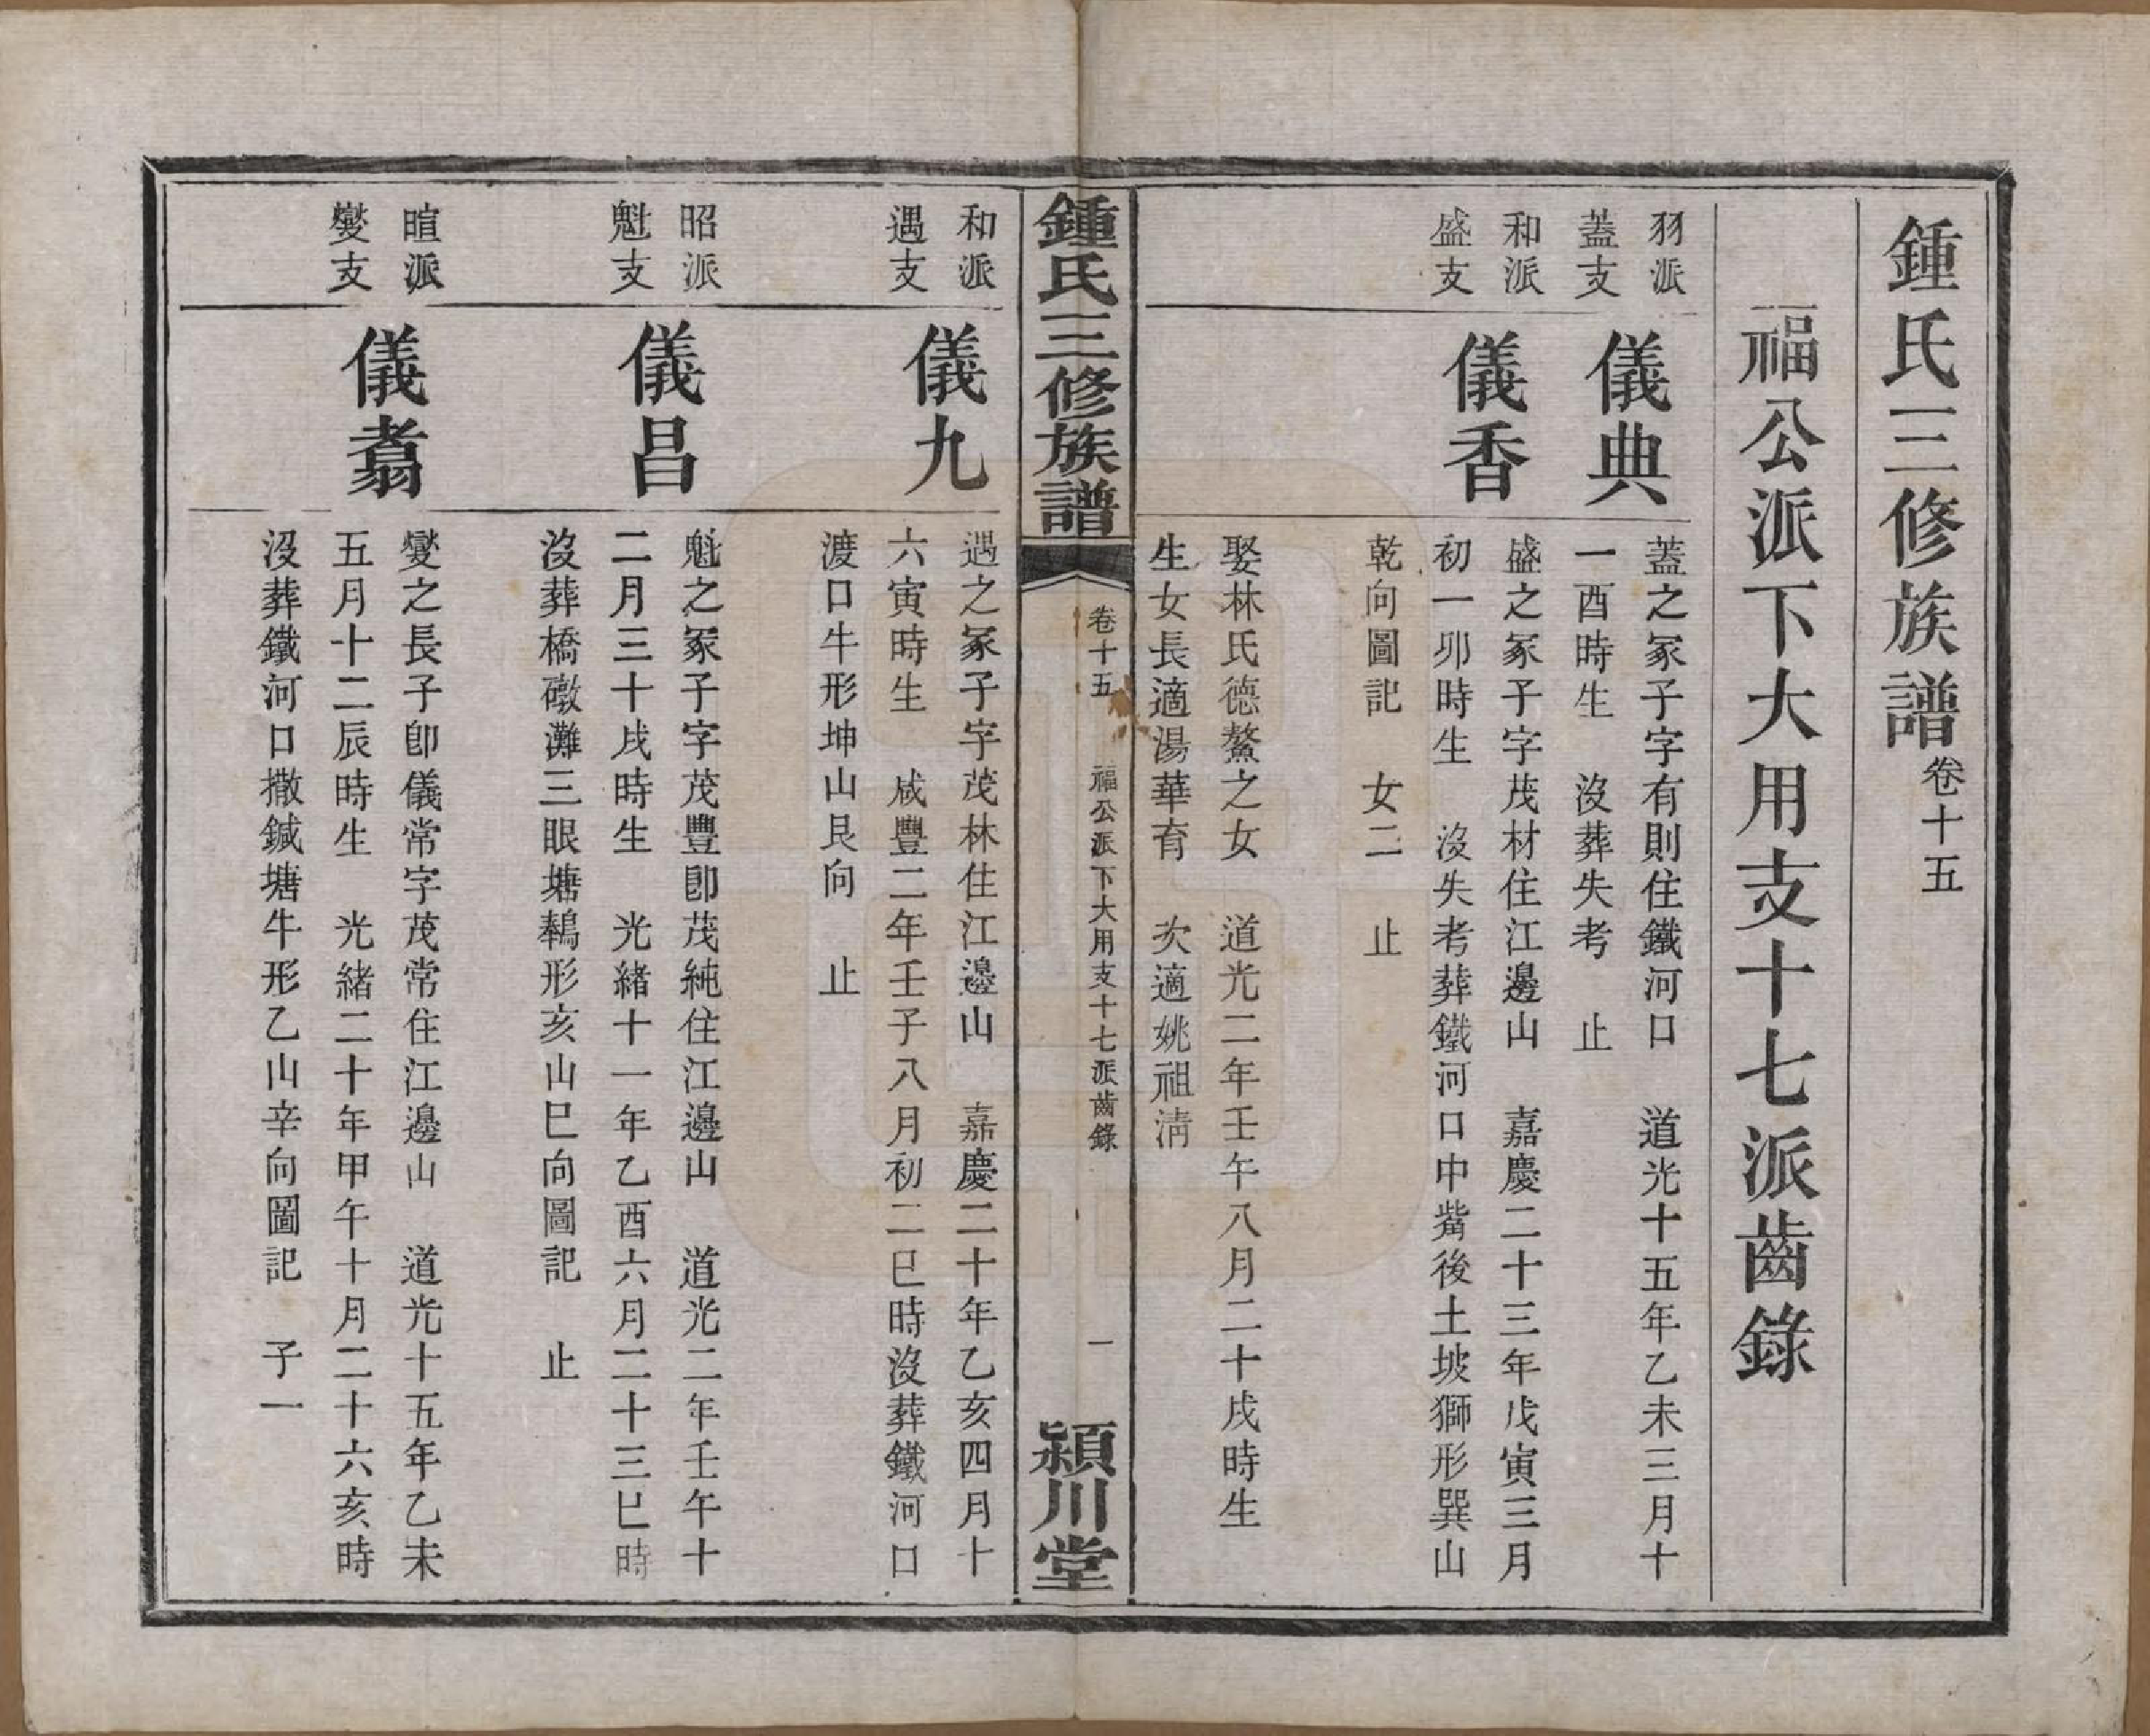 鍾氏三修族譜卷十五
福公派下大用支十七派齒錄
羽派
蓋支
儀典
蓋之冢子字有則住鐵河口　道光十五年乙未三月十
一酉時生　沒葬失考　止
和派
盛支
儀香
盛之冢子字茂材住江邊山　嘉慶二十三年戊寅三月
初一卯時生　沒失考葬鐵河口中觜後土坡獅形巽山
乾向圖記　女二　止
娶林氏德鰲之女　道光二年壬午八月二十戌時生
生女長適湯華育　次適姚祖淸
鍾氏三修族譜
卷十五　福公派下大用支十七派齒錄　一
潁川堂
和派
遇支
儀九
遇之冢子字茂林住江邊山　嘉慶二十年乙亥四月十
六寅時生　咸豐二年壬子八月初二巳時沒葬鐵河口
渡口牛形坤山艮向　止
昭派
魁支
儀昌
魁之冢子字茂豐卽茂純住江邊山　道光二年壬午十
二月三十戌時生　光緒十一年乙酉六月二十三巳時
沒葬橋礅灘三眼塘鵝形亥山巳向圖記　止
暄派
燮支
儀翥
燮之長子卽儀常字茂常住江邊山　道光十五年乙未
五月十二辰時生　光緒二十年甲午十月二十六亥時
沒葬鐵河口撒鍼塘牛形乙山辛向圖記　子一